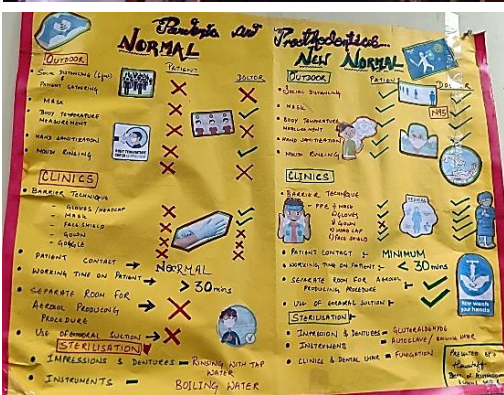 Pandemic and Prosthodontics...
NORMAL
NEW NORMAL
OUTDOOR
PATIENT
DOCTOR
• SOCIAL DISTANCING (6ft)
PATIENT GATHERING
• MASK
• BODY TEMPERATURE
MEASUREMENT
• HAND SANITIZATION
• MOUTH RINSING
CLINICS
• BARRIER TECHNIQUE
- GLOVES / HEADCAP
- MASK
- FACE SHIELD
- GOWN
- GOGGLE
• PATIENT CONTACT → NORMAL
• WORKING TIME ON PATIENT → > 30 mins
• SEPARATE ROOM FOR →
AEROSOL PRODUCING
PROCEDURE
• USE OF EXTRAORAL SUCTION →
STERILISATION
• IMPRESSIONS & DENTURES - RINSING WITH TAP
WATER
• INSTRUMENTS - BOILING WATER
OUTDOOR
PATIENT
DOCTOR
• SOCIAL DISTANCING
• MASK
N95
• BODY TEMPERATURE
MEASUREMENT
• HAND SANITIZATION
• MOUTH RINSING
CLINICS
• BARRIER TECHNIQUE
- PPE
MASK
GLOVES
GOWN
HEAD CAP
FACE SHIELD
• PATIENT CONTACT :- MINIMUM
• WORKING TIME ON PATIENT :- 30 mins
• SEPARATE ROOM FOR AEROSOL
PRODUCING PROCEDURE
• USE OF EXTRAORAL SUCTION :-
STERILISATION :-
• IMPRESSION & DENTURES - GLUTERALDEHYDE
• INSTRUMENT - AUTOCLAVE / BOILING WATER
• CLINICS & DENTAL CHAIR - FUMIGATION
Now wash
your hands
PRESENTED BY:-